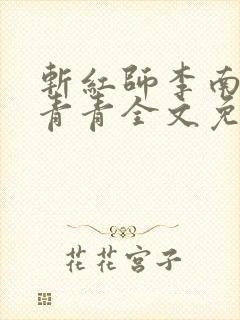 斬紅師李南
青青全文免
花花宫子